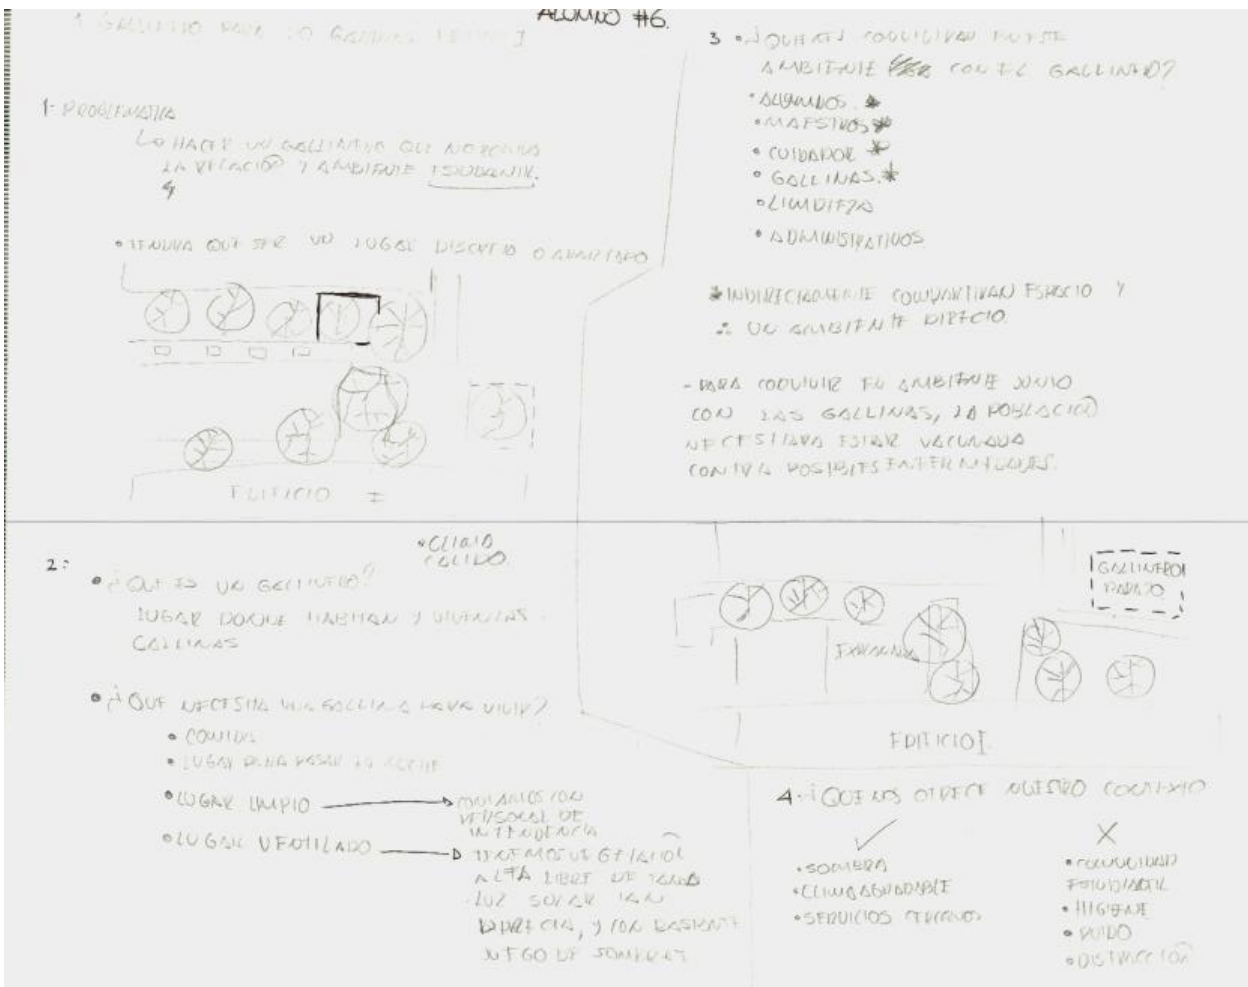 ALUMNO #6.
GALLINERO PARA 20 GALLINAS
1- PROBLEMATICA
HACER UN GALLINERO QUE NO
LA RELACIÓN Y AMBIENTE ESTUDIANTIL.
• TENDRA QUE SER UN LUGAR DISCRETO O APARTADO
EDIFICIO I
2:
• CLIMA
CALIDO
• ¿QUE ES UN GALLINERO?
LUGAR DONDE HABITAN Y VIVEN LAS
GALLINAS
• ¿QUE NECESITA UNA GALLINA PARA VIVIR?
• COMIDA
• LUGAR PARA PASAR LA NOCHE
• LUGAR LIMPIO
CONTAMOS CON
PERSONAL DE
INTENDENCIA
• LUGAR VENTILADO
TENEMOS VEGETACIÓN
ALTA LIBRE DE TANTA
LUZ SOLAR TAN
DIRECTA, Y CON BASTANTE
JUEGO DE SOMBRAS
3 • ¿QUIENES CONVIVIRAN EN ESTE
AMBIENTE CON EL GALLINERO?
• ALUMNOS *
• MAESTROS *
• CUIDADOR *
• GALLINAS. *
• LIMPIEZA
• ADMINISTRATIVOS
* INDIRECTAMENTE COMPARTIRAN ESPACIO Y
∴ UN AMBIENTE DIRECTO.
- PARA CONVIVIR EN AMBIENTE JUNTO
CON LAS GALLINAS, LA POBLACIÓN
NECESITARA ESTAR VACUNADA
CONTRA POSIBLES ENFERMEDADES.
GALLINERO
EDIFICIO I
4. ¿QUE NOS OFRECE NUESTRO CONTEXTO
• SOMBRA
• CLIMA AGRADABLE
• SERVICIOS CERCANOS
• COMUNIDAD
ESTUDIANTIL
• HIGIENE
• RUIDO
• DISTRACCIÓN